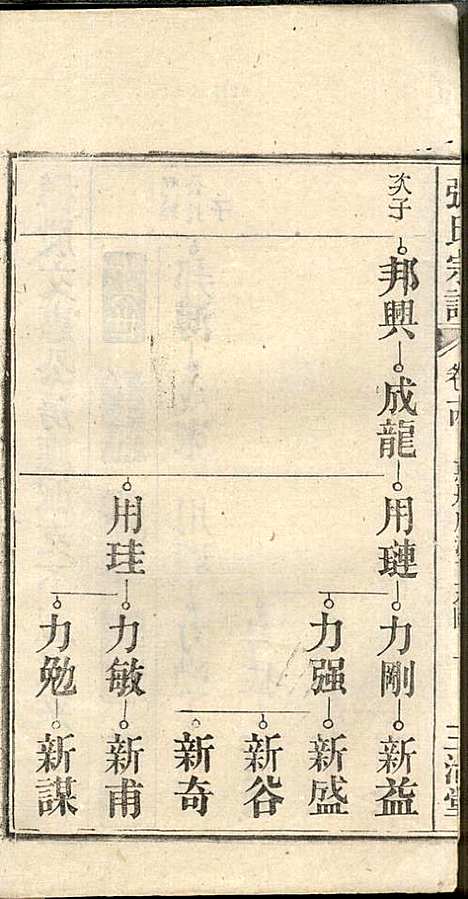 張氏宗譜
卷十四
三治堂
次子
邦興
成龍
用璉
力剛
新益
力强
新盛
新谷
新奇
用珪
力敏
新甫
力勉
新謀